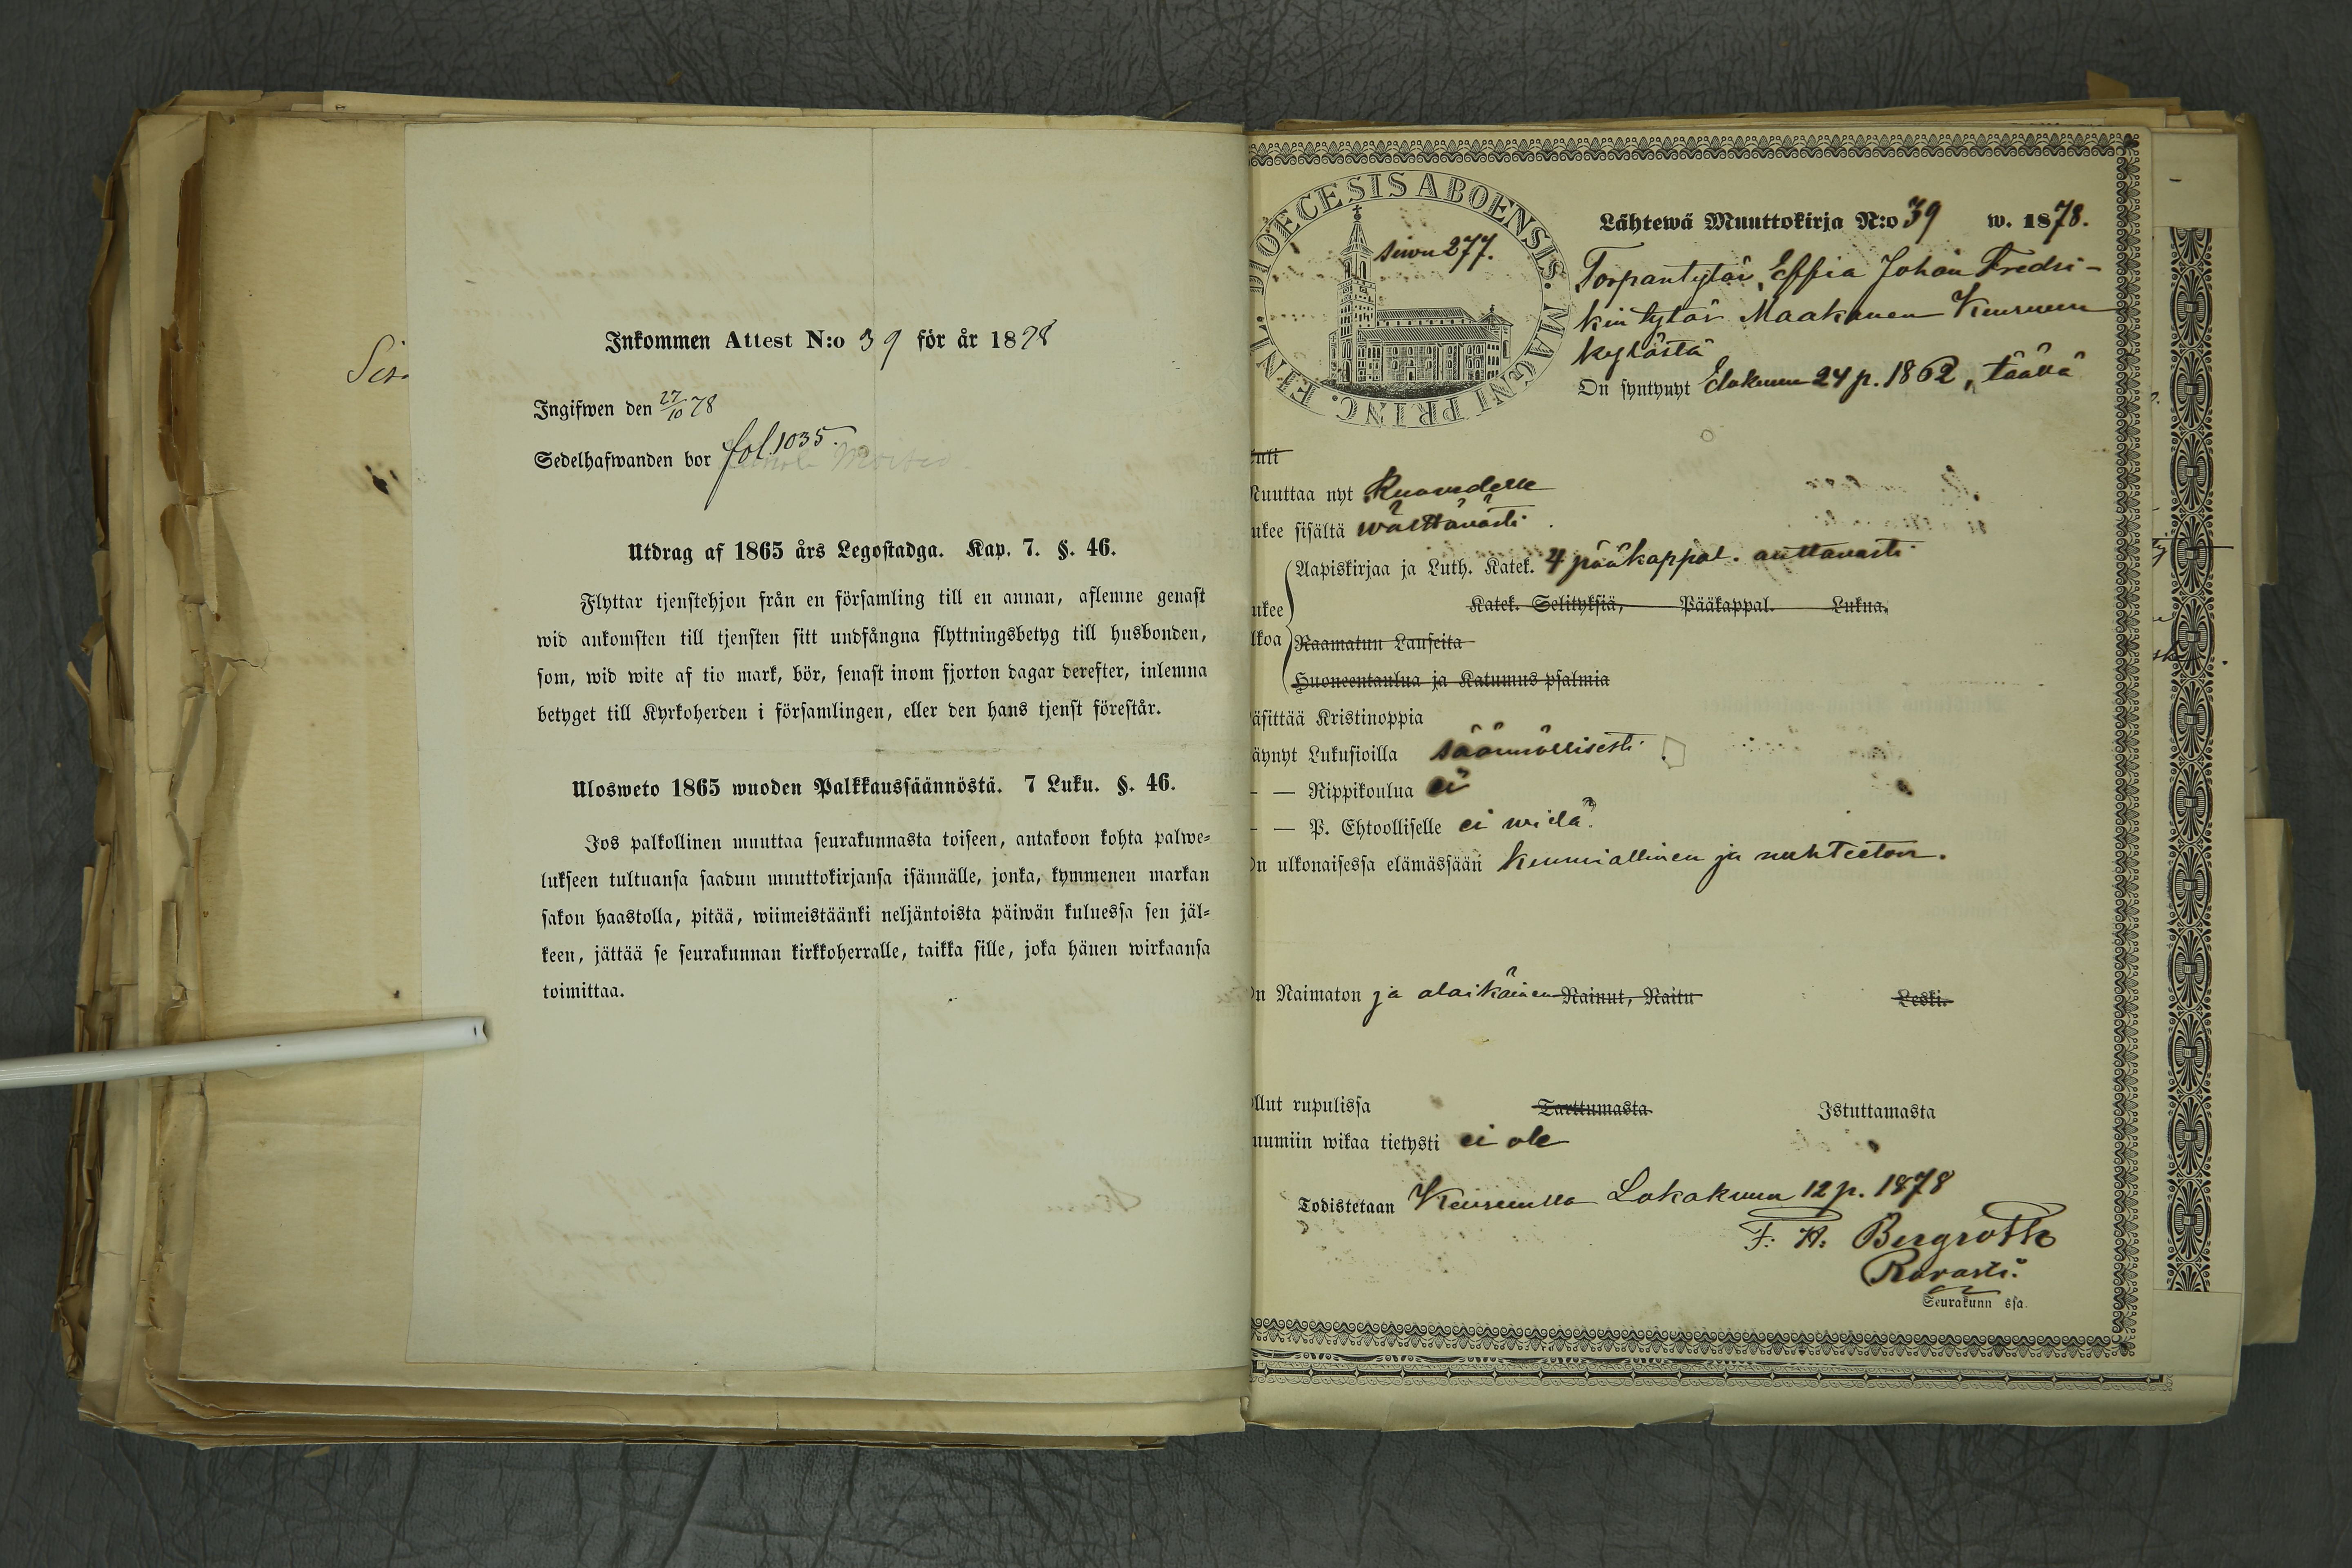 Inkommen Attest N:o 39 för år 1878
Ingifwen den 27/10 78
Sedelhafwanden bor fol. 1035.
Utdrag af 1865 års Legostadga. Kap. 7. §. 46.
Flyttar tjenstehjon från en församling till en annan, aflemne genast
wid ankomsten till tjensten sitt undfångna flyttningsbetyg till husbonden,
som, wid wite af tio mark, bör, senast inom fjorton dagar derefter, inlemna
betyget till Kyrkoherden i församlingen, eller den hans tjenst förestår.
Ulosweto 1865 wuoden Palkkaussäännöstä. 7 Luku. §. 46.
Jos palkollinen muuttaa seurakunnasta toiseen, antakoon kohta palwe-
lukseen tultuansa saadun muuttokirjansa isännälle, jonka, kymmenen markan
sakon haastolla, pitää, wiimeistäänki neljäntoista päiwän kuluessa sen jäl-
keen, jättää se seurakunnan kirkkoherralle, taikka sille, joka hänen wirkaansa
toimittaa.
DIOECESIS ABOENSIS. MAGNI PRINC. FINL.
siwu 277.
Lähtewä Muuttokirja N:o 39 w. 1878.
Torpantytär, Effia Johan Fredri-
kin tytär Maakanen Keuruun
kylästä
On syntynyt Elokuun 24 p. 1862, täällä
Muuttaa nyt Ruovedelle
ukee sisältä wälttäwästi
Aapiskirjaa ja Luth. Katek. 4 pääkappal. auttavasti
ukee Katek. Selityksiä, Pääkappal. Lukua.
lkoa Raamatun Lauseita
Huoneentaulua ja Katumus psalmia
äsittää Kristinoppia
äynyt Lukusioilla säännöllisesti
— Rippikoulua ei
— P. Ehtoolliselle ei wielä
On ulkonaisessa elämässään kunniallinen ja nuhteeton.
On Naimaton ja alaikäinen Nainut, Naitu Leski.
llut rupulissa Tarttumasta Istuttamasta
uumiin wikaa tietysti ei ole
Todistetaan Keuruulla Lokakuun 12 p. 1878
F. H. Bergroth
Rovasti.
Seurakunn ssa.